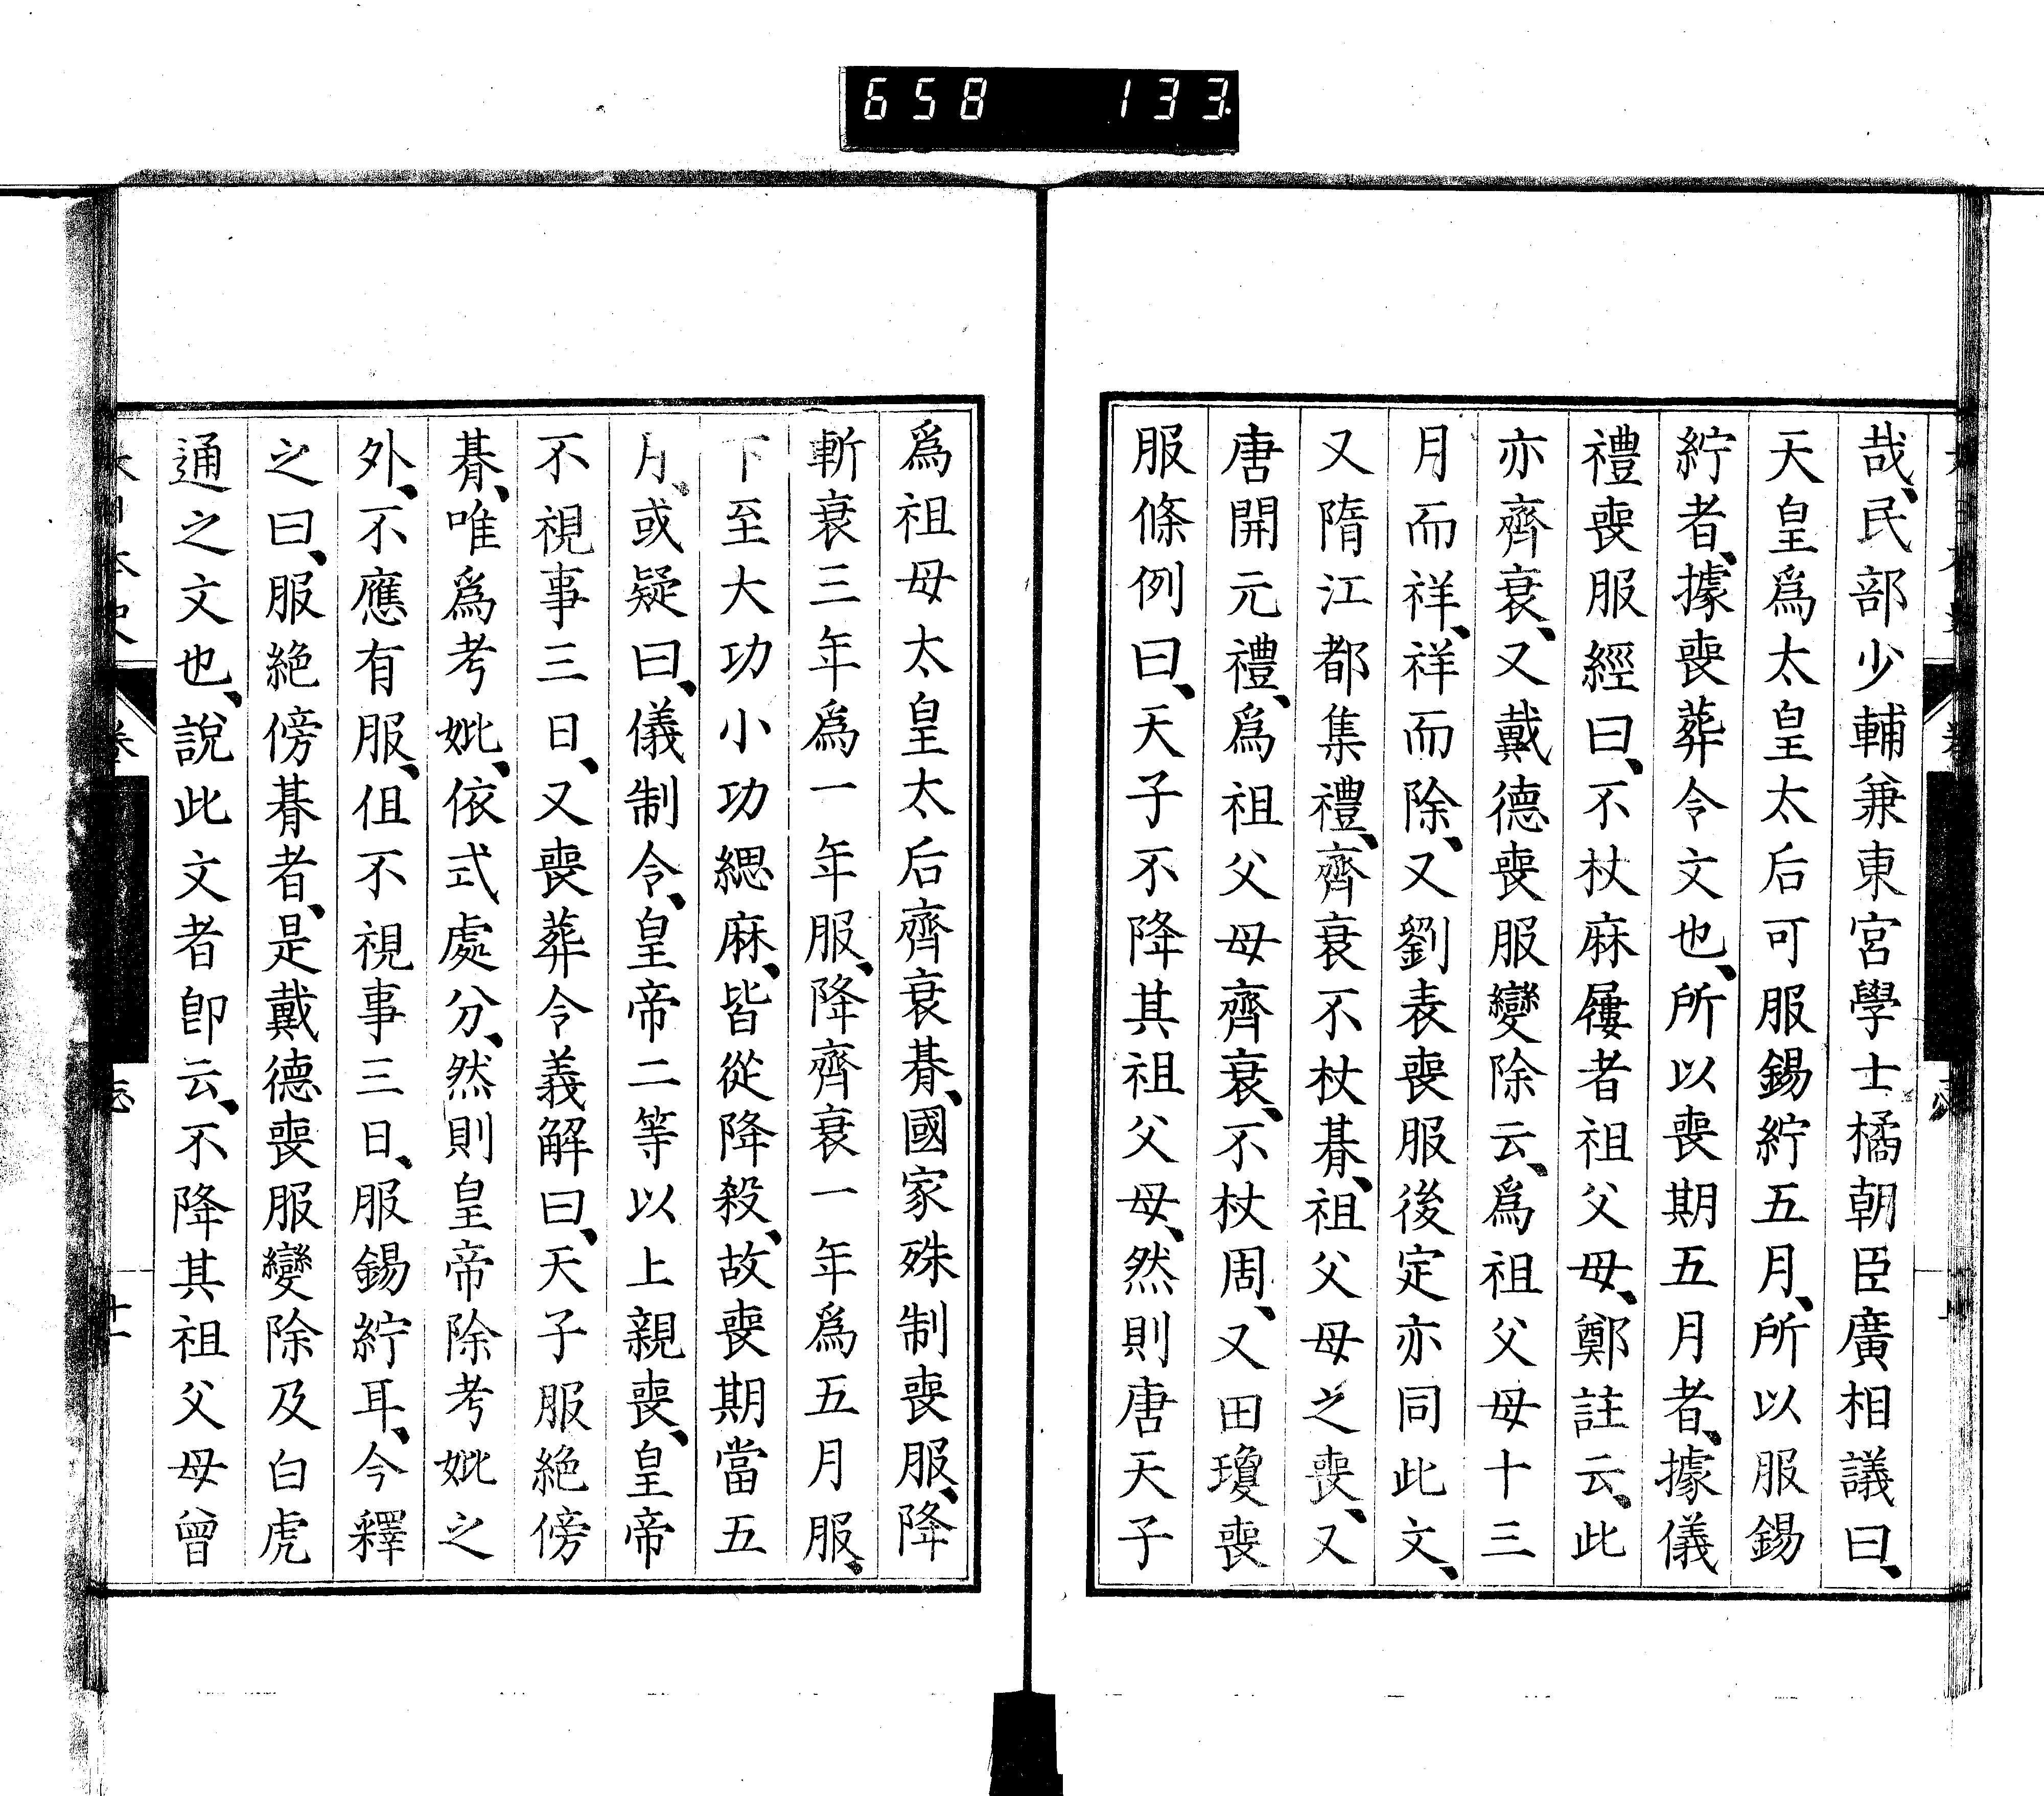 658 133
哉、民部少輔兼東宮學士橘朝臣廣相議曰、
天皇爲太皇太后可服錫紵五月、所以服錫
紵者、據喪葬令文也、所以喪期五月者、據儀
禮喪服經曰、不杖麻屨者祖父母、鄭註云、此
亦齊衰、又戴德喪服變除云、爲祖父母十三
月而祥、祥而除、又劉表喪服後定亦同此文、
又隋江都集禮、齊衰不杖朞、祖父母之喪、又
唐開元禮、爲祖父母齊衰、不杖周、又田瓊喪
服條例曰、天子不降其祖父母、然則唐天子
爲祖母太皇太后齊衰朞、國家殊制喪服、降
斬衰三年爲一年服、降齊衰一年爲五月服、
下至大功小功緦麻、皆從降殺、故喪期當五
月、或疑曰、儀制令、皇帝二等以上親喪、皇帝
不視事三日、又喪葬令義解曰、天子服絕傍
朞、唯爲考妣、依式處分、然則皇帝除考妣之
外、不應有服、但不視事三日、服錫紵耳、今釋
之曰、服絕傍朞者、是戴德喪服變除及白虎
通之文也、說此文者卽云、不降其祖父母曾